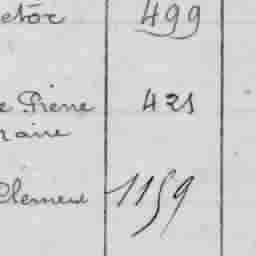 etör 499
e Pierre 421
raire
Clemens 1159